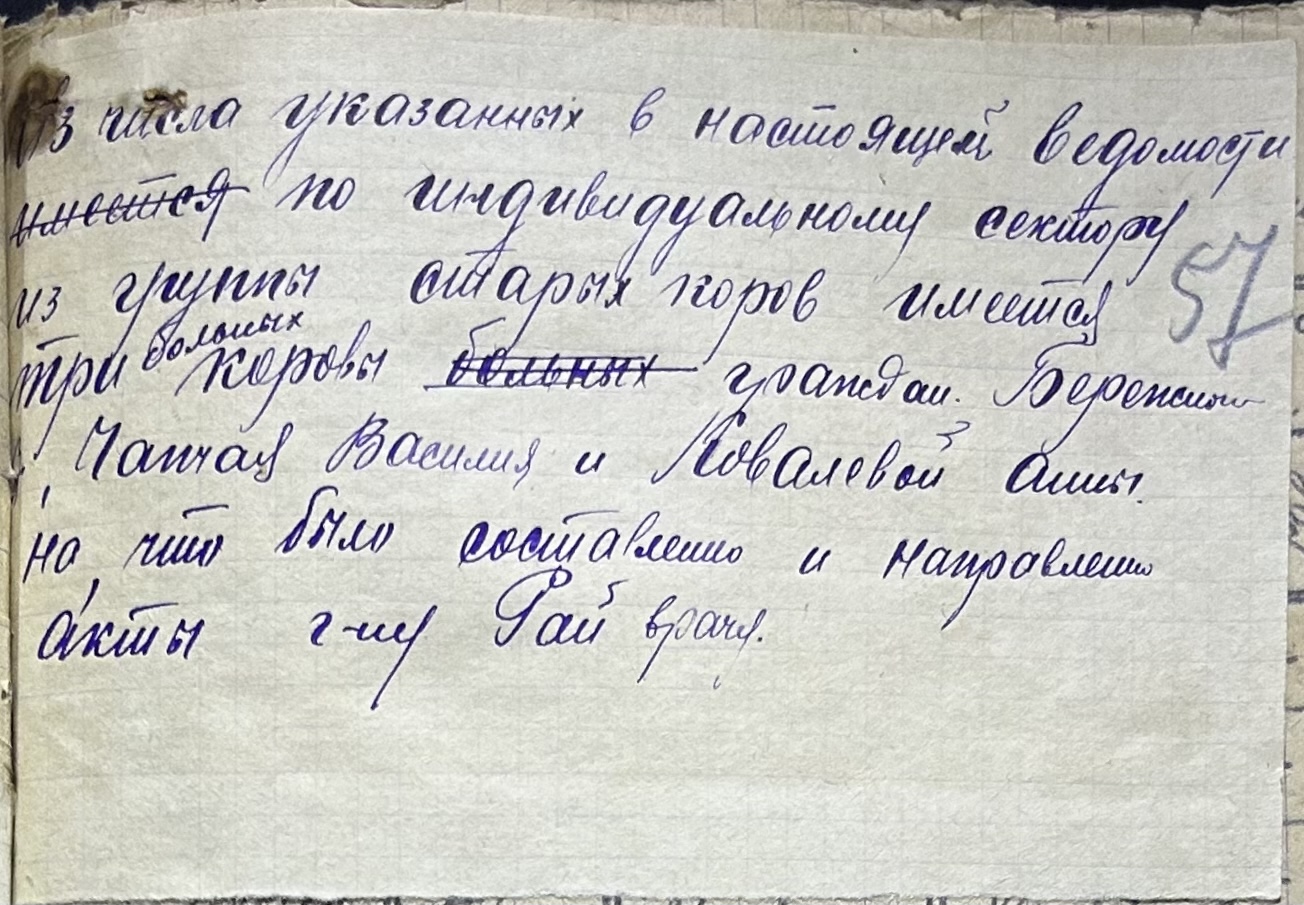 Из числа указанных в настоящей ведомости
~~имеется~~ по индивидуальному сектору
из группы старых коров имеется
57
три больных коровы ~~больных~~ граждан.
Чапчая Василия и Ковалевой Анны.
на что было составленно и направленно
акты г-ну Рай врачу.